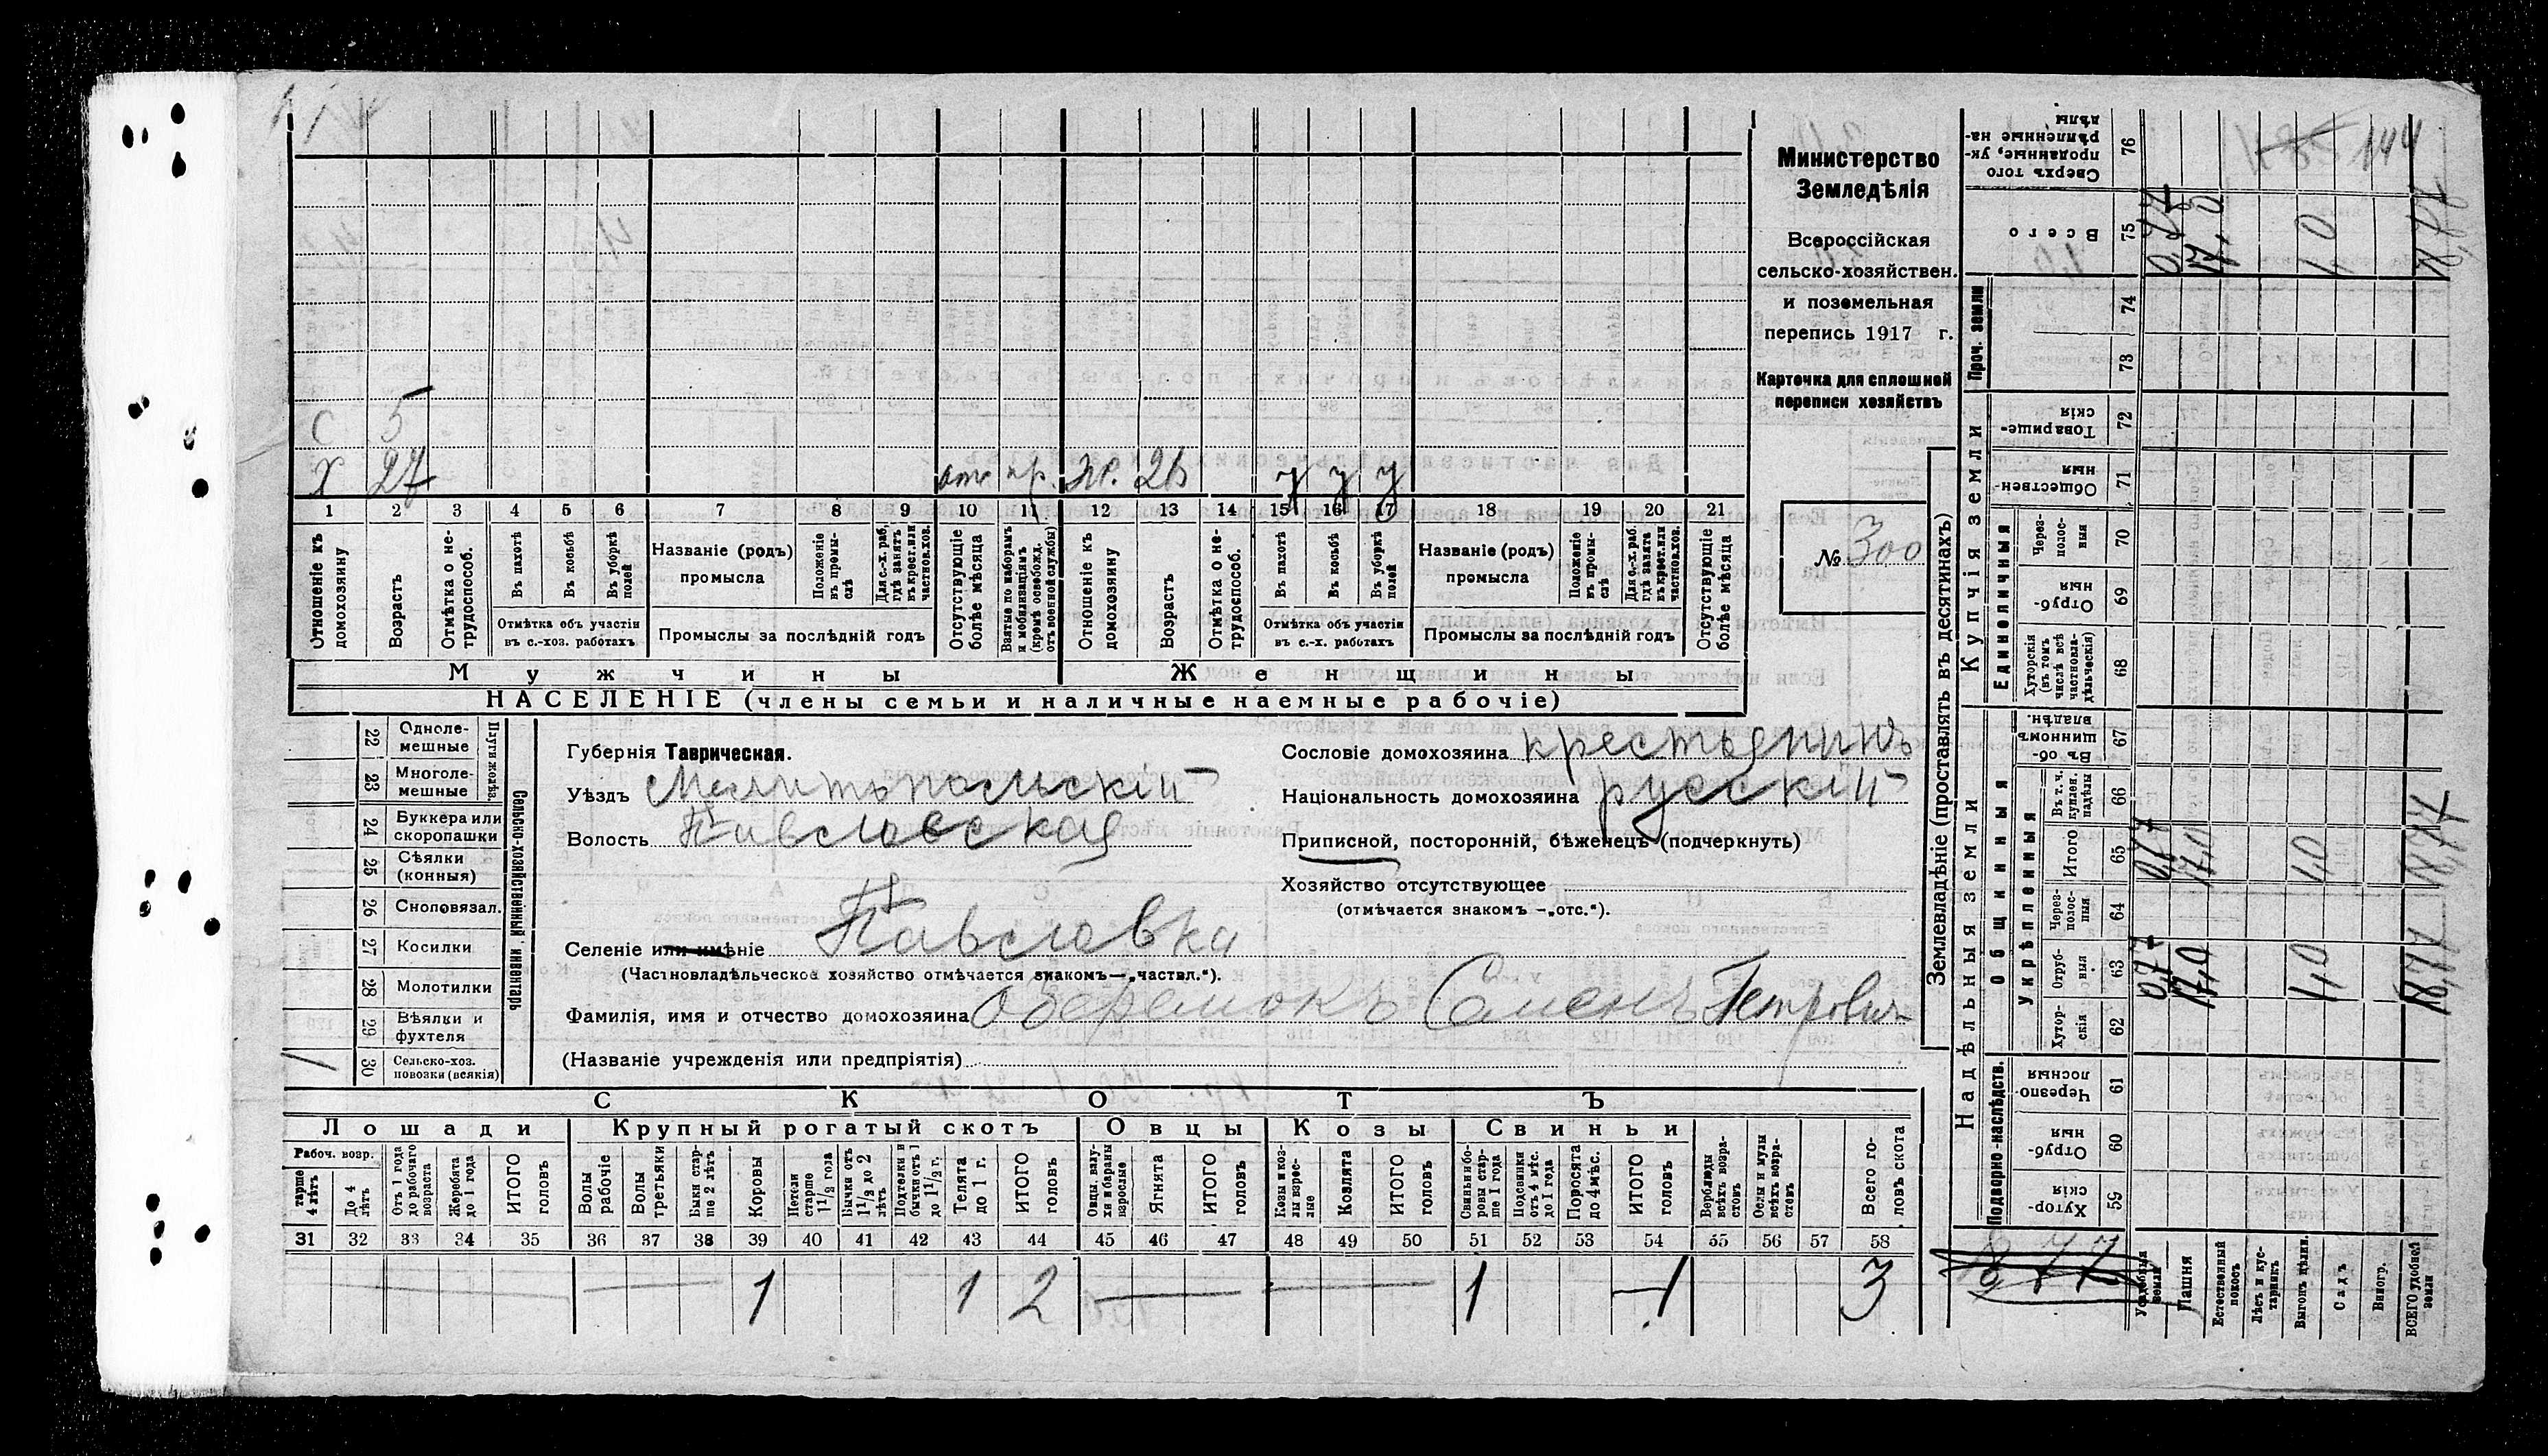 144
С 5
Х 27 отс пр. ж. 26 у у у
1 2 3 4 5 6 7 8 9 10 11 12 13 14 15 16 17 18 19 20 21
Отношеніе къ домохозяину
Возрастъ
Отмѣтка о не-трудоспособ.
Въ пахотѣ
Въ косьбѣ
Въ уборкѣ полей
Отмѣтка объ участіи
въ с.-хоз. работахъ
Названіе (родъ)
промысла
Положеніе въ промы-слѣ
Для с.-х. раб. гдѣ занятъ въ крест. или частновл. хоз.
Промыслы за послѣдній годъ
Отсутствующіе болѣе мѣсяца
Взятые по наборамъ и мобилизаціямъ (кромѣ освобожд. отъ военной службы)
Отношеніе къ домохозяину
Возрастъ
Отмѣтка о не-трудоспособ.
Въ пахотѣ
Въ косьбѣ
Въ уборкѣ полей
Отмѣтка объ участіи
въ с.-х. работахъ
Названіе (родъ)
промысла
Положеніе въ промы-слѣ
Для с.-х. раб. гдѣ занята въ крест. или частновл. хоз.
Промыслы за послѣдній годъ
Отсутствующіе болѣе мѣсяца
Мужчины Женщины
НАСЕЛЕНІЕ (члены семьи и наличные наемные рабочіе)
Министерство
Земледѣлія
Всероссійская
сельско-хозяйствен.
и поземельная
перепись 1917 г.
Карточка для сплошной
переписи хозяйствъ
№ 300
22 Одноле-мешные
23 Многоле-мешные
Плуги желѣз.
24 Буккера или скоропашки
25 Сѣялки (конныя)
26 Сноповязал.
27 Косилки
28 Молотилки
29 Вѣялки и фухтеля
1 30 Сельско-хоз. повозки (всякія)
Сельско-хозяйственный инвентарь
Губернія Таврическая.
Уѣздъ Мелитопольскій
Волость Павловская
Селеніе или имѣніе Павловка
(Частновладѣльческое хозяйство отмѣчается знакомъ—„частвл.“).
Фамилія, имя и отчество домохозяина Оберемокъ Семенъ Петровичъ
(Названіе учрежденія или предпріятія)
Сословіе домохозяина крестьянинъ
Національность домохозяина русскій
Приписной, посторонній, бѣженецъ (подчеркнуть)
Хозяйство отсутствующее
(отмѣчается знакомъ —„отс.“).
СКОТЪ
Лошади Крупный рогатый скотъ Овцы Козы Свиньи
Рабоч. возр.
тарше 4 лѣтъ
До 4 лѣтъ
Отъ 1 года до рабочаго возраста
Жеребята до 1 года
ИТОГО головъ
Волы рабочіе
Волы третьяки
Быки стар-ше 2 лѣтъ
Коровы
Нетели старше 1 1/2 года
Бычки отъ 1 1/2 до 2 лѣтъ
Подтелки и бычки отъ 1 до 1 1/2 г.
Телята до 1 г.
ИТОГО головъ
Овцы, валу-хи и бараны взрослые
Ягнята
ИТОГО головъ
Козы и коз-лы взрос-лые
Козлята
ИТОГО головъ
Свиньи и бо-ровы стар-ше 1 года
Подсвинки отъ 4 мѣс. до 1 года
Поросята до 4 мѣс.
ИТОГО головъ
Верблюды всѣхъ возра-стовъ
Ослы и мулы всѣхъ возра-стовъ
Всего го-ловъ скота
31 32 33 34 35 36 37 38 39 40 41 42 43 44 45 46 47 48 49 50 51 52 53 54 55 56 57 58
1 1 2 1 1 3
Землевладѣніе (проставлять въ десятинахъ)
Надѣльныя земли
Купчія земли
Проч. земли
Подворно-наслѣдств.
Общинныя
Укрѣпленныя
Единоличныя
Сверхъ того проданные, ук-рѣпленные на-дѣлы 76
Всего 75 0,77 17,0 1,0 18,77
74
73
Товарище-скія 72
Обществен-ныя 71
Через-полос-ныя 70
Отруб-ныя 69
Хуторскія (въ томъ числѣ всѣ частновла-дѣльческія) 68
Въ об-щинномъ владѣн. 67
Въ т. ч. куплен. надѣлы 66
Итого 65 0,77 17,0 1,0 18,77
Через-полос-ныя 64
Отруб-ныя 63 0,77 17,0 1,0 18,77
Хутор-скія 62
Черезпо-лосныя 61
Отруб-ныя 60
Хутор-скія 59
Усадебная земля
Пашня
Естественный покосъ
Лѣсъ и кус-тарникъ
Выгонъ цѣлин.
Садъ
Виногр.
ВСЕГО удобной земли